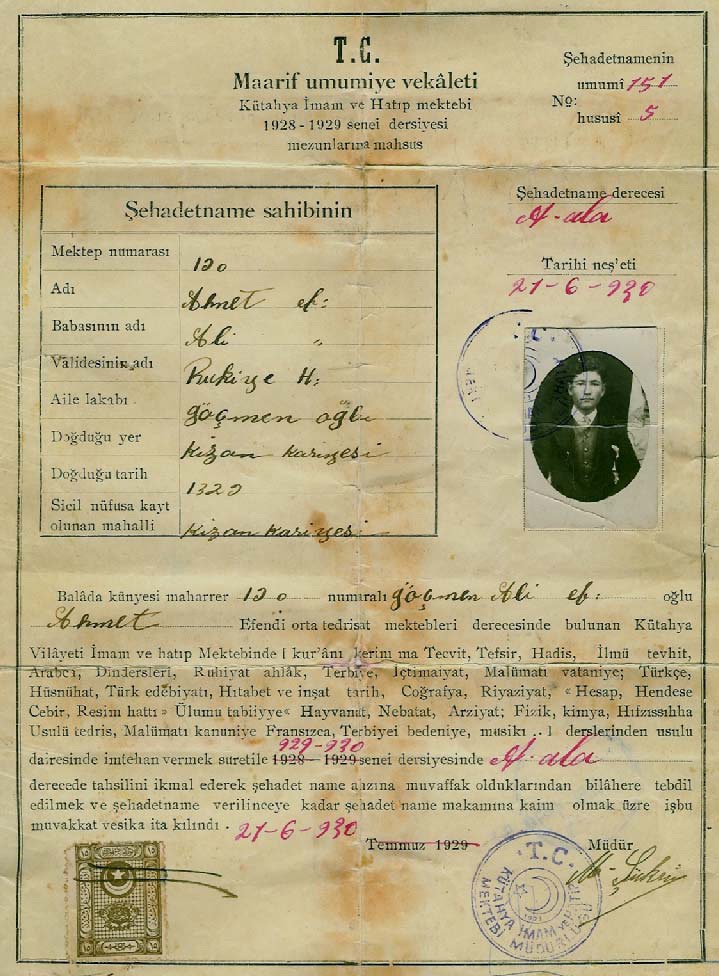 T.C.
Maarif umumiye vekâleti
Kütahya İmam ve Hatıp mektebi
1928 - 1929 senei dersiyesi
mezunlarına mahsus
Şehadetnamenin
umumî 151
No:
hususî 5
Şehadetname derecesi
A-ala
Tarihi neş'eti
21-6-930
Şehadetname sahibinin
Mektep numarası 120
Adı Ahmet ef:
Babasının adı Ali "
Validesinin adı Rukiye H:
Aile lakabı göçmen oğlu
Doğduğu yer Kizan Kariyesi
Doğduğu tarih 1322
Sicil nüfusa kayt
olunan mahalli Kizan Kariyesi
Balâda künyesi maharrer 120 numıralı göçmen Ali ef: oğlu
Ahmet Efendi orta tedrisat mektebleri derecesinde bulunan Kütahya
Vilâyeti İmam ve hatıp Mektebinde [ kur'ânı kerim ma Tecvit, Tefsir, Hadis, İlmü tevhit,
Arabcı, Dindersleri, Ruhiyat ahlâk, Terbiye, İçtimaiyat, Malümatı vataniye; Türkçe,
Hüsnühat, Türk edebiyatı, Hıtabet ve inşat tarih, Coğrafya, Riyaziyat, « Hesap, Hendese
Cebir, Resim hattı » Ülumu tabiiyye « Hayvanat, Nebatat, Arziyat; Fizik, kimya, Hıfzıssıhha
Usulü tedris, Malümatı kanuniye Fransızca, Terbiyei bedeniye, musiki ..] derslerinden usulu
929-930
dairesinde imtehan vermek suretile 1928 - 1929 senei dersiyesinde A-ala
derecede tahsilini ikmal ederek şehadet name ahzına muvaffak olduklarından bilâhere tebdil
edilmek ve şehadetname verilinceye kadar şehadet name makamına kaim olmak üzre işbu
muvakkat vesika ita kılındı. 21-6-930 Temmuz 1929 Müdür
T.C.
KÜTAHYA İMAM VE HATİP
MEKTEBİ MÜDÜRLÜĞÜ